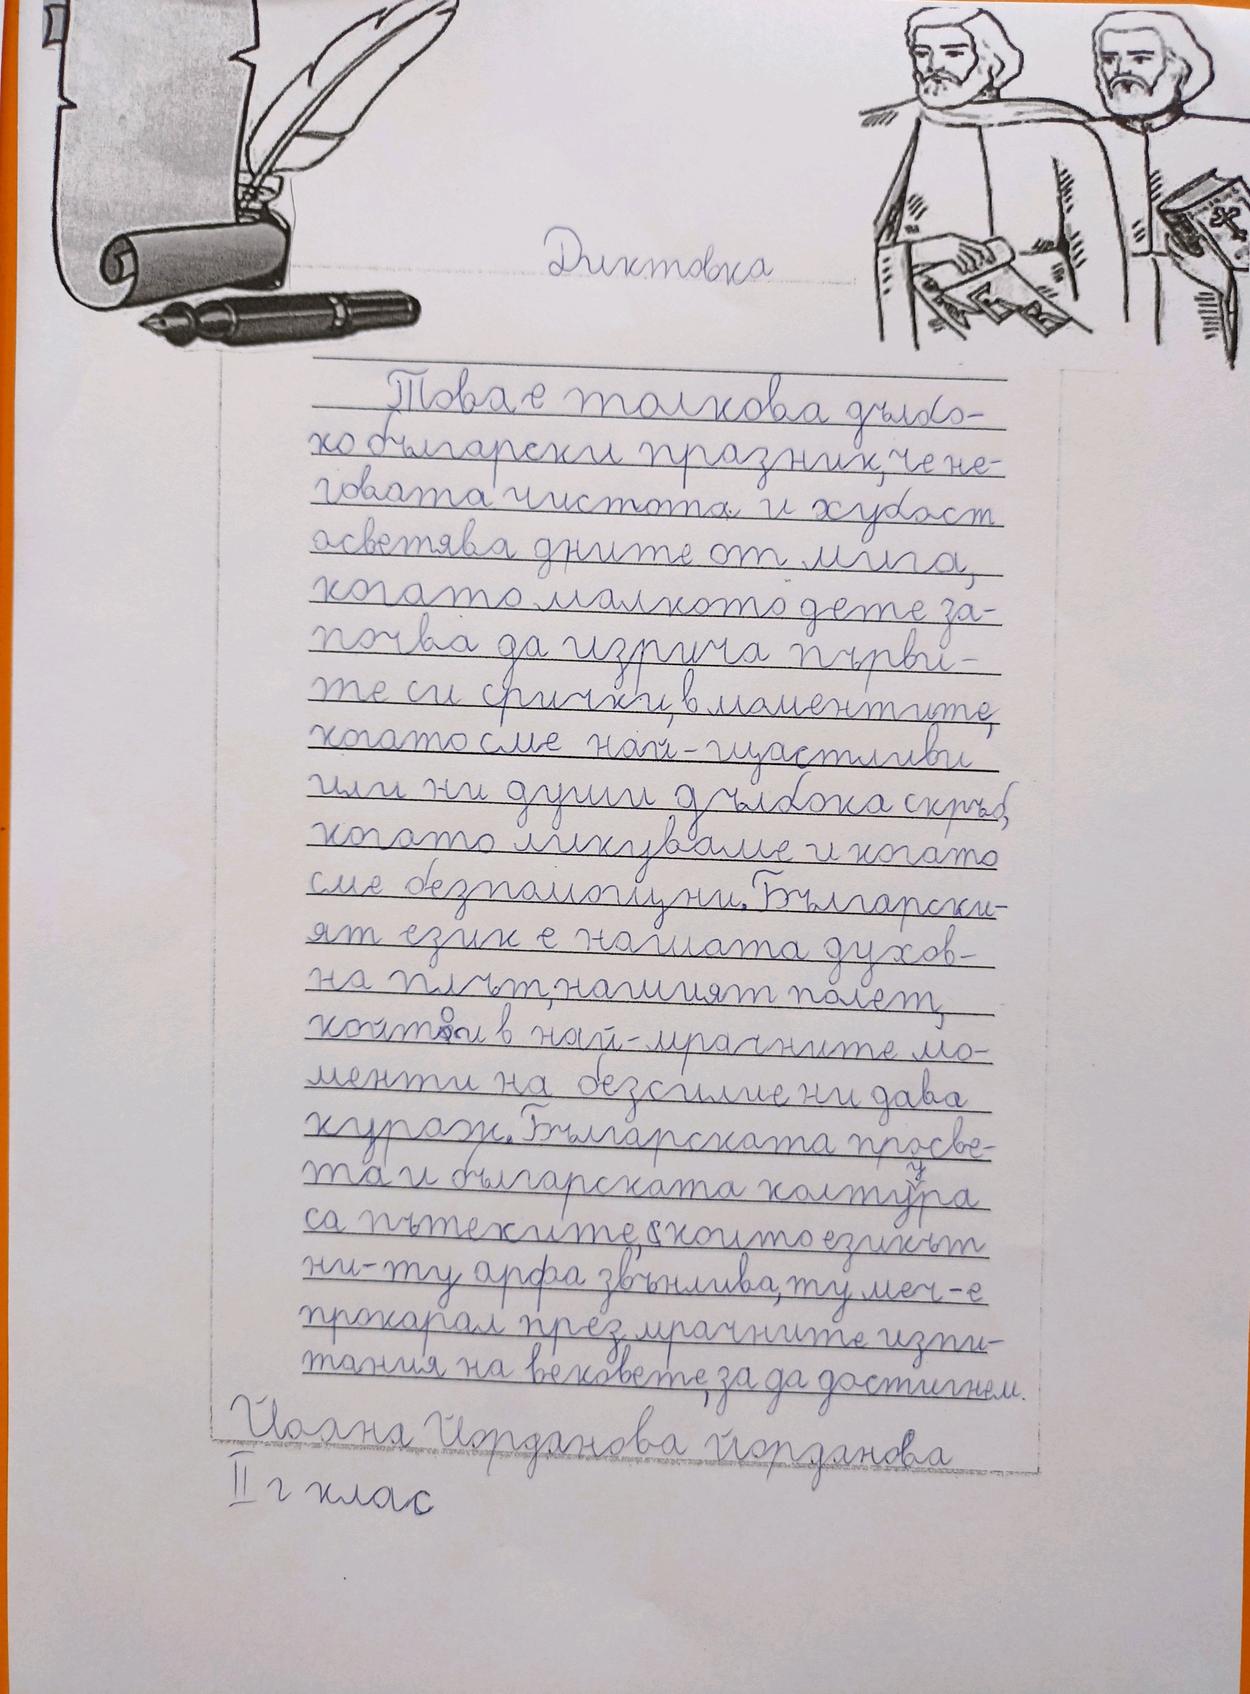 Диктовка
Това е толкова дълбо-
ко български празник, че не-
говата чистота и хубост
осветява дните от мига,
когато малкото дете за-
почва да изрича първи-
те си срички, в моментите,
когато сме най-щастливи
или ни души дълбока скръб,
когато ликуваме и когато
сме безпомощни. Български-
ят език е нашата духов-
на плът, нашият полет,
който и в най-мрачните мо-
менти на безсилие ни дава
кураж. Българската просве-
та и българската колтура
са пътеките, които езикът
ни-ту арфа звънлива, ту меч-е
прокарал през мрачните изпи-
тания на вековете, за да достигнем.
Йоана Йорданова Йорданова
II г клас